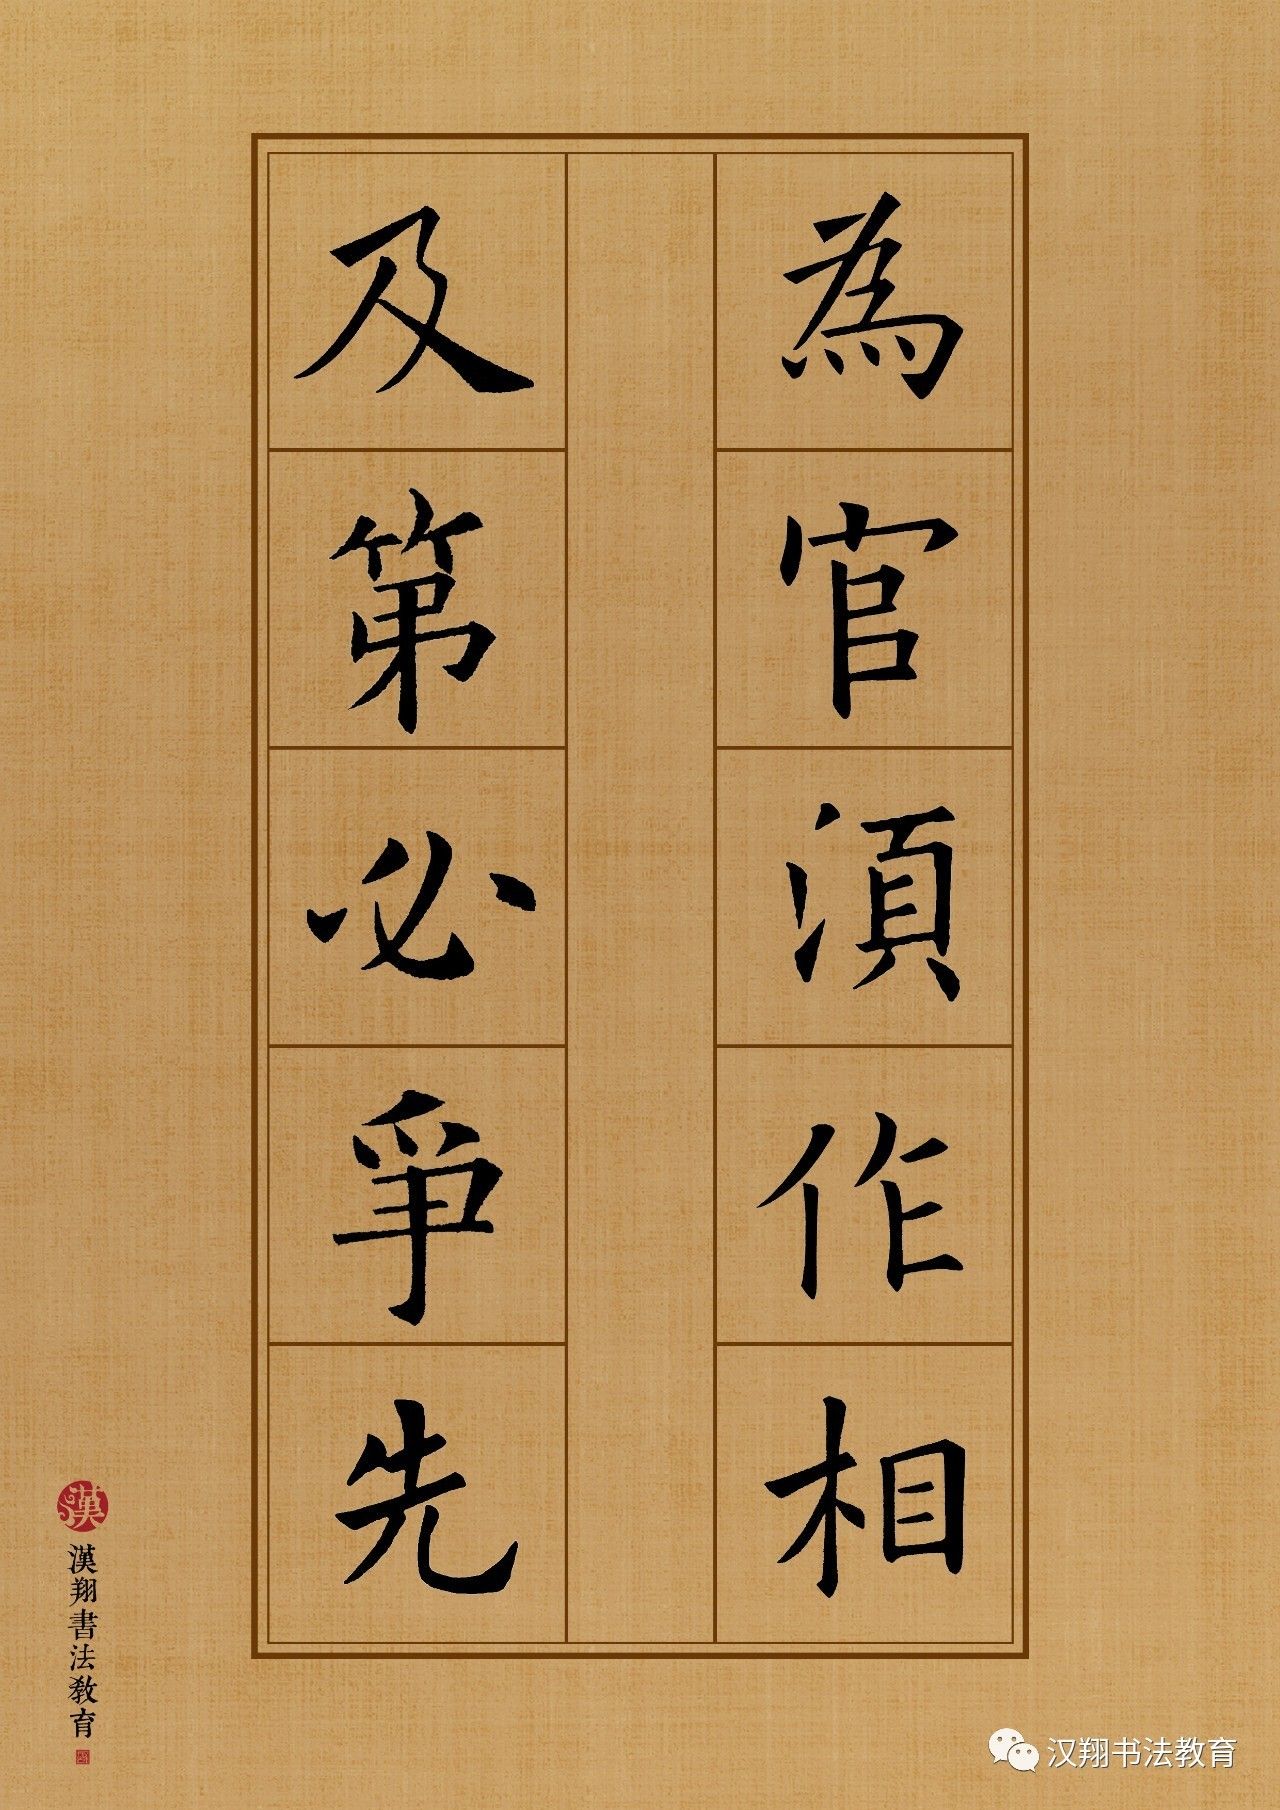 為官須作相
及第必爭先
漢
漢翔書法教育
汉翔书法教育